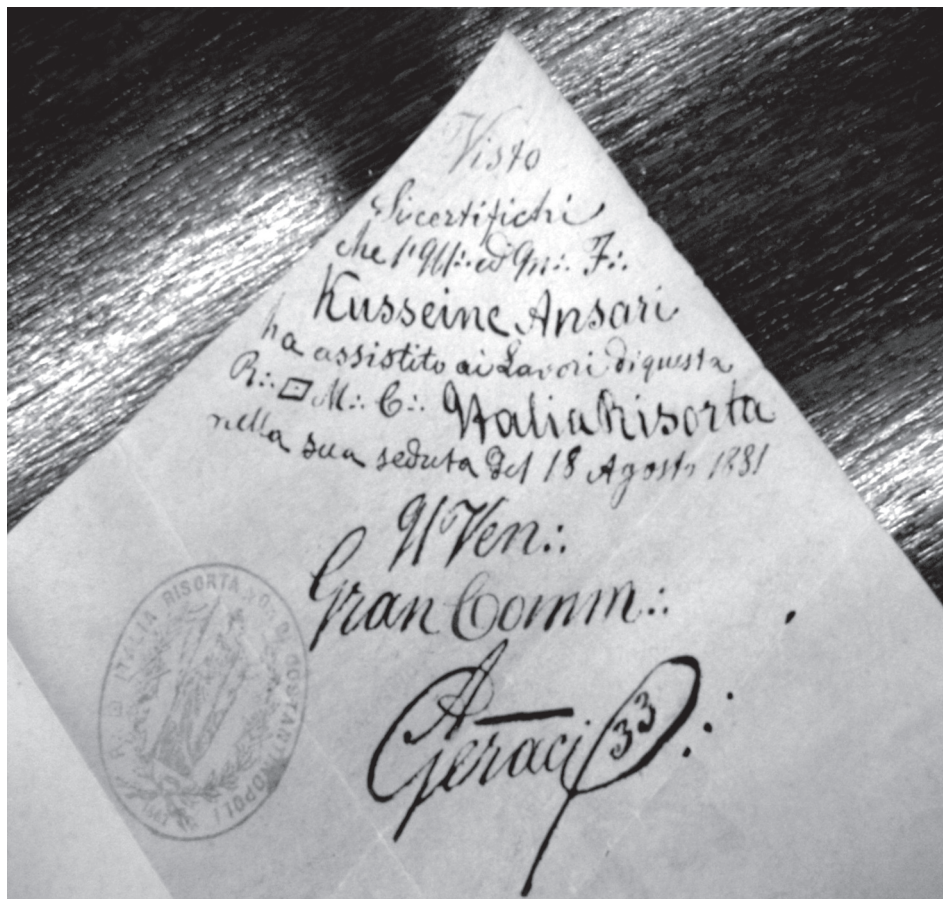 Visto
Si certifichi
che l'Ill∴ ed Ill∴ F∴
Kusseine Ansari
ha assistito ai Lavori di questa
R∴ M∴ C∴ Italia Risorta
nella sua seduta del 18 Agosto 1881
Il Ven∴
Gran Comm∴
A Geraci 33∴
ITALIA RISORTA COSTANTINOPOLI